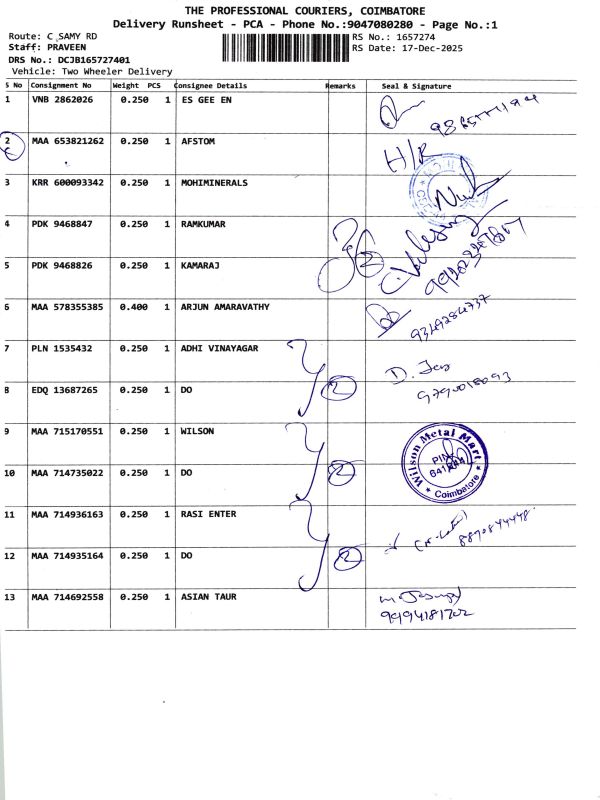 THE PROFESSIONAL COURIERS, COIMBATORE
Delivery Runsheet - PCA - Phone No.:9047080280 - Page No.:1
Route: C SAMY RD RS No.: 1657274
Staff: PRAVEEN RS Date: 17-Dec-2025
DRS No.: DCJB165727401
Vehicle: Two Wheeler Delivery
S No Consignment No Weight PCS Consignee Details Remarks Seal & Signature
1 VNB 2862026 0.250 1 ES GEE EN
2 MAA 653821262 0.250 1 AFSTOM H/R
3 KRR 600093342 0.250 1 MOHIMINERALS
4 PDK 9468847 0.250 1 RAMKUMAR
5 PDK 9468826 0.250 1 KAMARAJ 2
6 MAA 578355385 0.400 1 ARJUN AMARAVATHY
9349284737
7 PLN 1535432 0.250 1 ADHI VINAYAGAR
8 EDQ 13687265 0.250 1 DO 2
9 MAA 715170551 0.250 1 WILSON
Wilson Metal Mart
PIN
Coimbatore
10 MAA 714735022 0.250 1 DO 2
11 MAA 714936163 0.250 1 RASI ENTER
8870844448
12 MAA 714935164 0.250 1 DO 2
13 MAA 714692558 0.250 1 ASIAN TAUR
9994181702